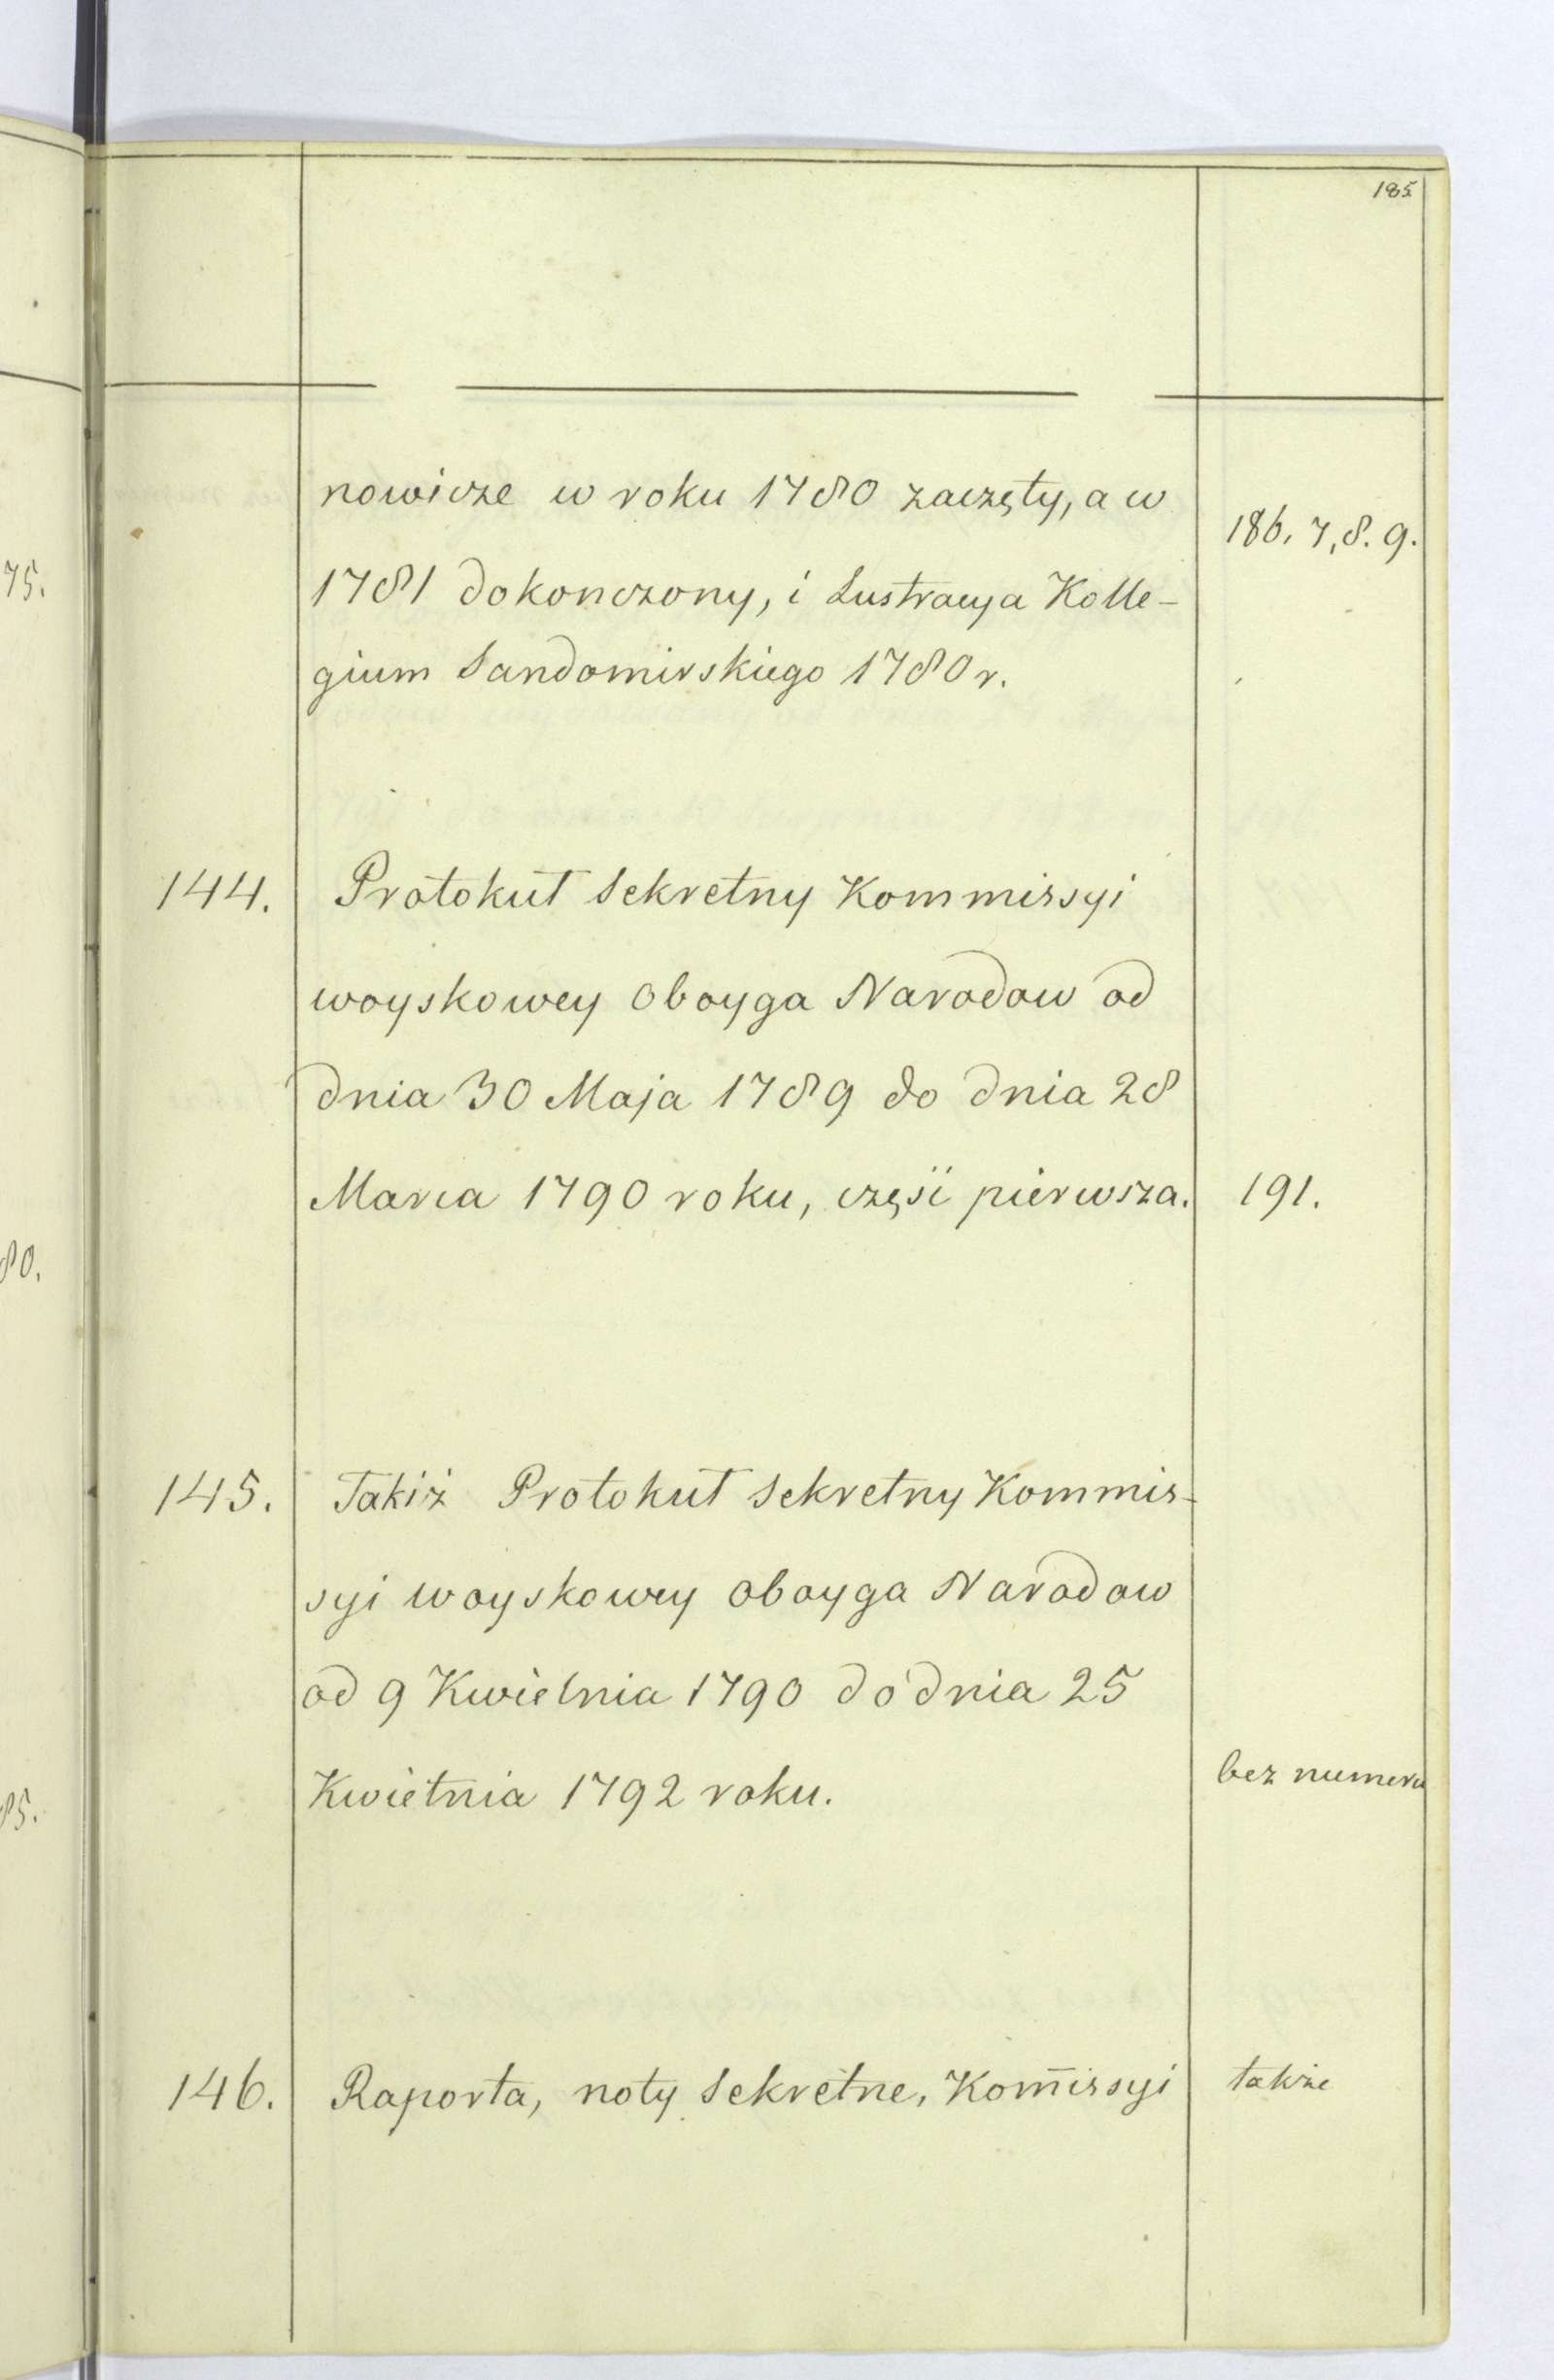 185
nowicze w roku 1780 zaczęty, a w
186. 7, 8. 9.
1781 dokonczony, i Lustracya Kolle-
gium Sandomirskiego 1780 r.
144. Protokuł Sekretny Kommissyi
woyskowey oboyga Narodow od
dnia 30 Maja 1789 do dnia 28
Marca 1790 roku, część pierwsza. 191.
145. Takiż Protokuł Sekretny Kommis-
syi woyskowey oboyga Narodow
od 9 Kwietnia 1790 do dnia 25
Kwietnia 1792 roku. bez numeru
146. Raporta, noty Sekretne, Kom̄issyi także
75.
80.
85.